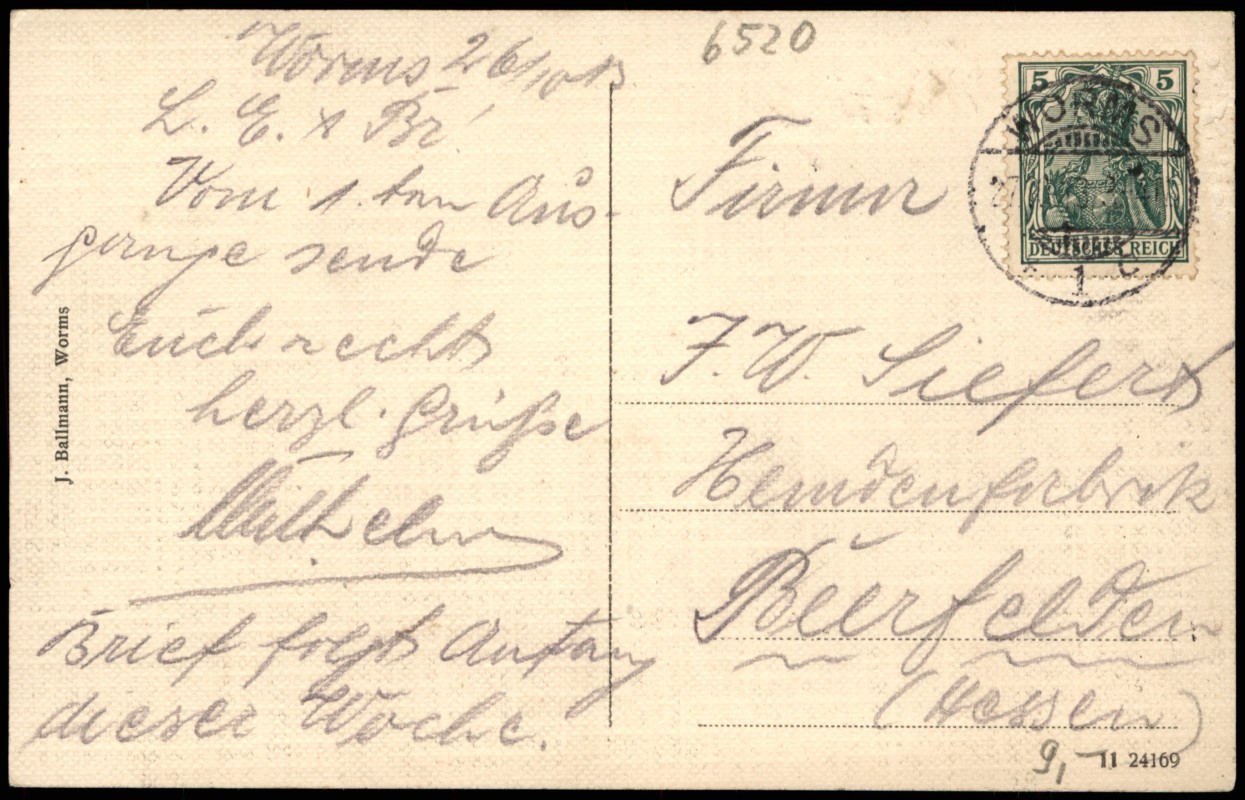 Worms 26/10 13
L. E. &
Vom 1. ten Aus-
gange sende
Euch recht
herzl. Grüße
Brief folgt Anfang
dieser Woche.
J. Ballmann, Worms
6520
5 5
DEUTSCHES REICH
WORMS
1
Firma
F. W. Siefert
Hemdenfabrik
Beerfelden
(Hessen)
9,-
11 24169